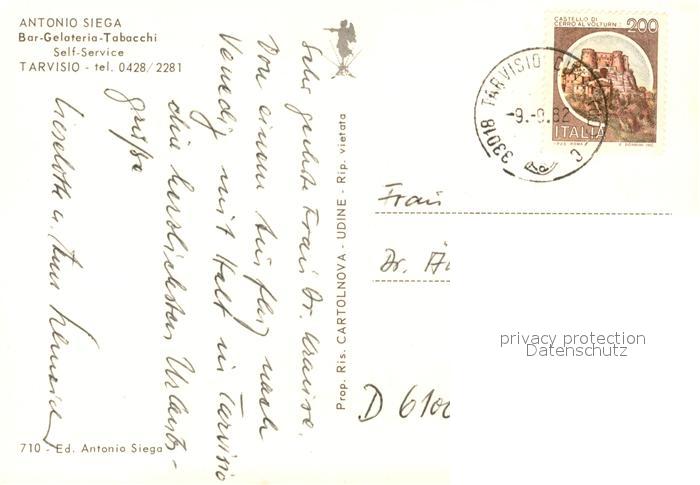 ANTONIO SIEGA
Bar-Gelateria-Tabacchi
Self-Service
TARVISIO - tel. 0428/2281
Sehr geehrte Frau Dr. Krause.
Von einem Ausflug nach
Venedig mit Halt in Tarvisio
die herzlichsten Urlaubs-
grüße
Lieselotte u.
Prop. Ris. CARTOLNOVA - UDINE - Rip. vietata
710 - Ed. Antonio Siega
CASTELLO DI
CERRO AL VOLTURNO
200
ITALIA
33018 TARVISIO
-9.-9.82
Frau
Dr.
D 6100
privacy protection
Datenschutz